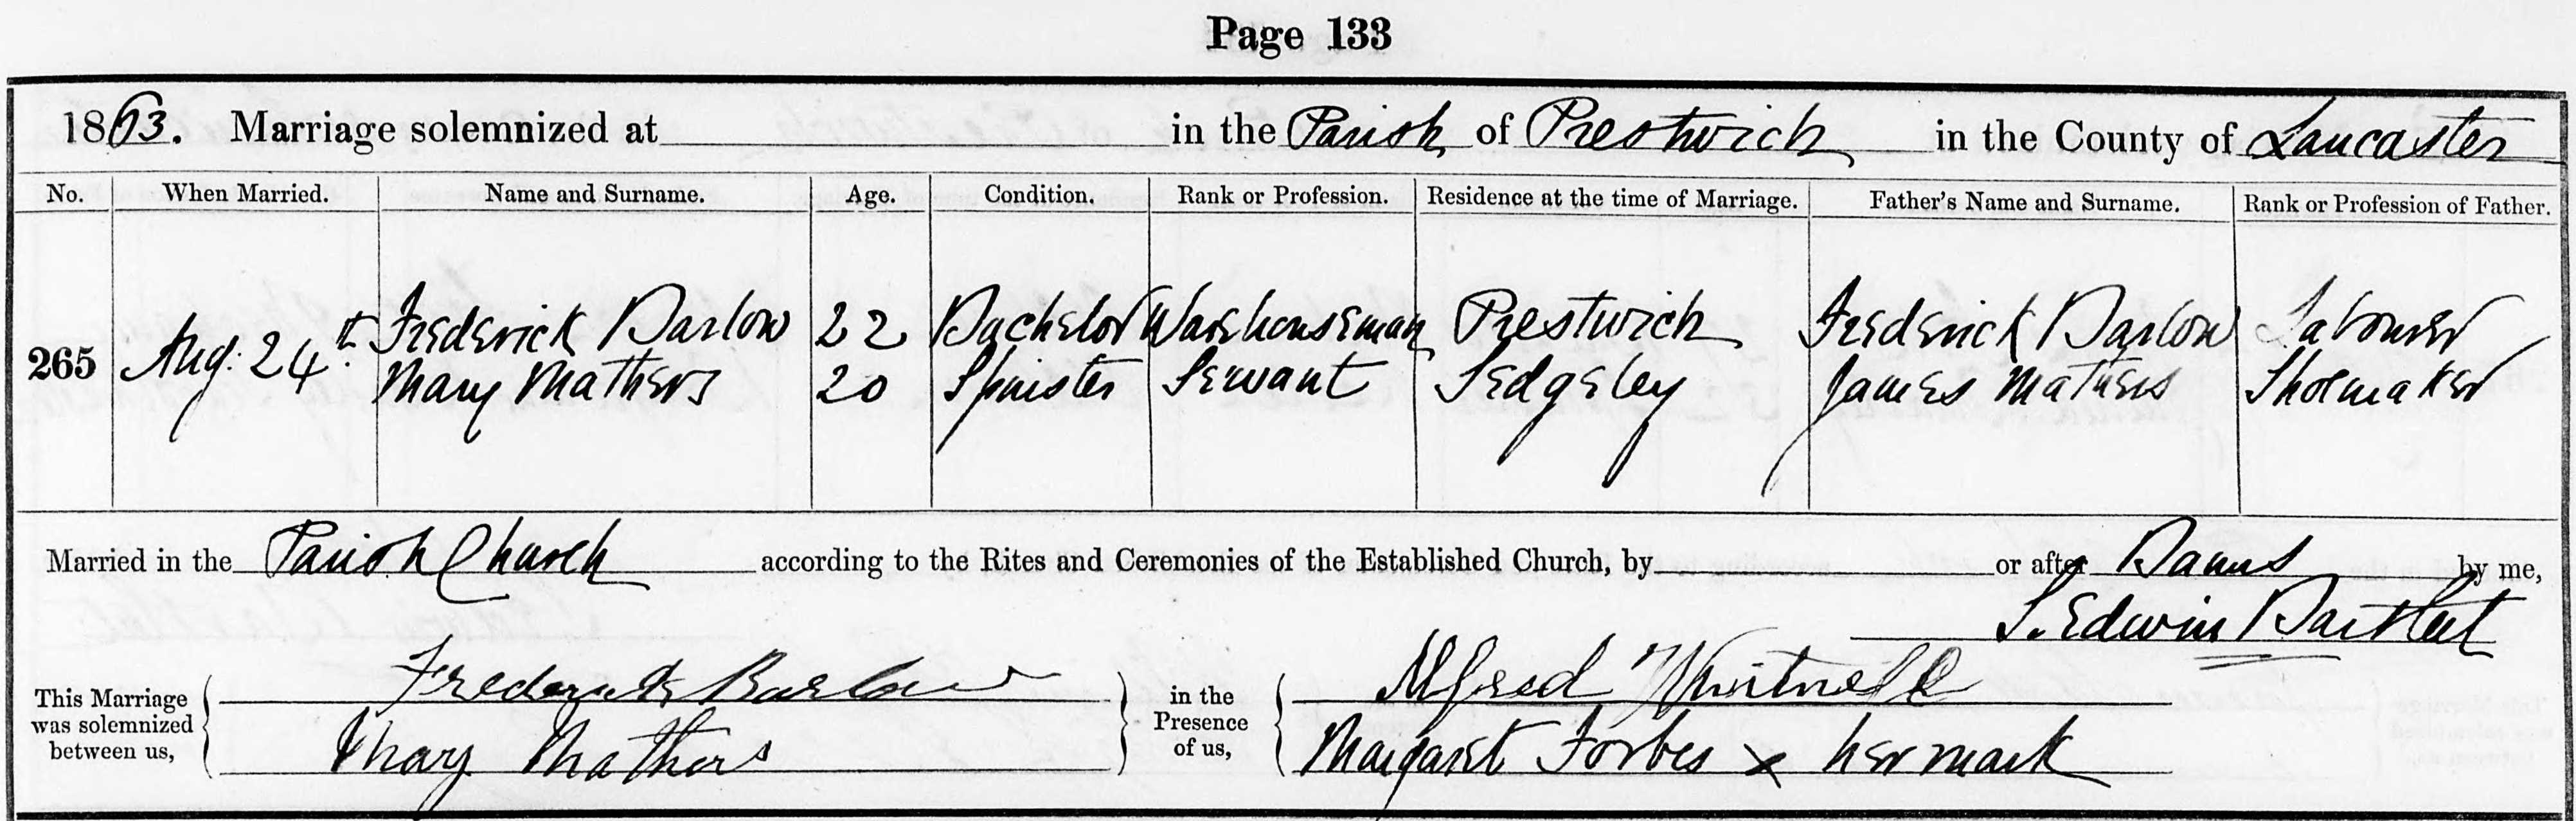 Page 133
1863. Marriage solemnized at in the Parish of Prestwich in the County of Lancaster
No. When Married. Name and Surname. Age. Condition. Rank or Profession. Residence at the time of Marriage. Father's Name and Surname. Rank or Profession of Father.
Frederick Barlow 22 Bachelor Warehouseman Prestwich Frederick Barlow Labourer
265 Aug: 24th
Mary Mathers 20 Spinster Servant Sedgeley James Mathers Shoemaker
Married in the Parish Church according to the Rites and Ceremonies of the Established Church, by or after Banns by me,
S. Edwin Bartleet
This Marriage was solemnized between us,
Frederick Barlow
Mary Mathers
in the Presence of us,
Alfred
Margaret Forbes x her mark